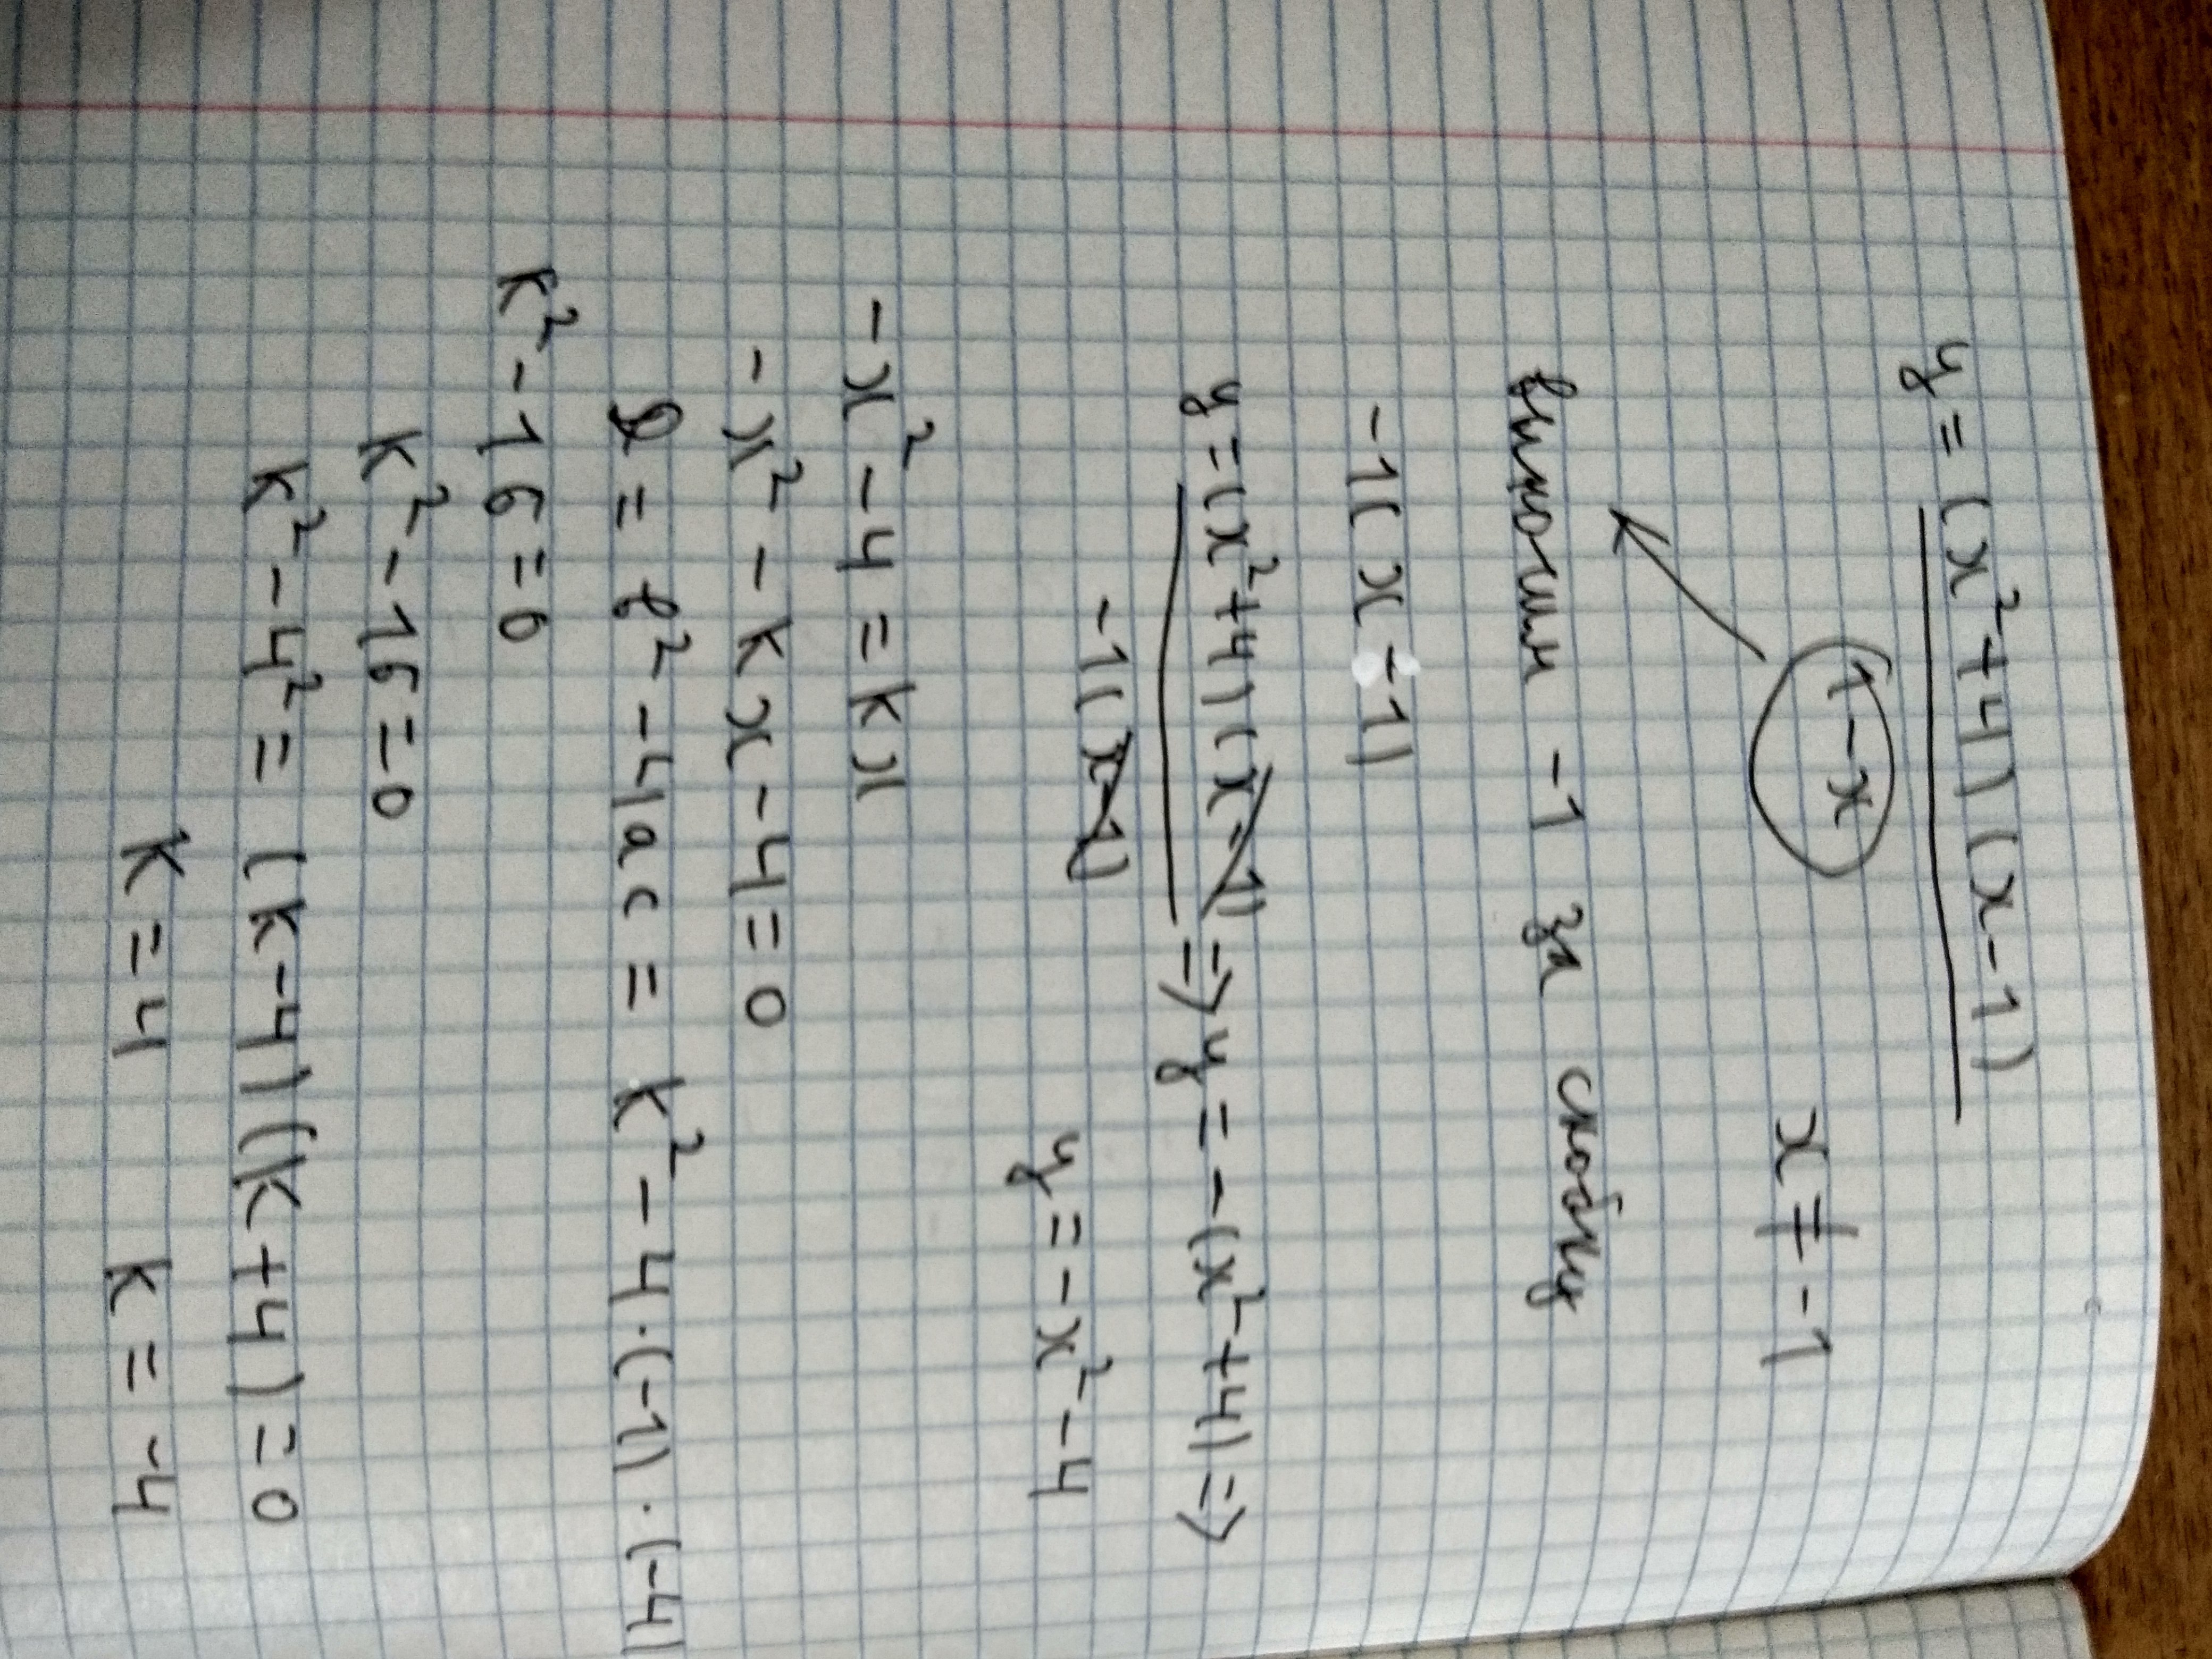 y = (x² + 4)(x - 1)
1 - x
x ≠ -1
выносим -1 за скобку
-1(x - 1)
y = (x² + 4)(x - 1) => y = -(x² + 4) =>
-1(x - 1)
y = -x² - 4
-x² - 4 = kx
-x² - kx - 4 = 0
D = b² - 4ac = k² - 4·(-1)·(-4)
k² - 16 = 0
k² - 16 = 0
k² - 4² = (k - 4)(k + 4) = 0
k = 4 k = -4